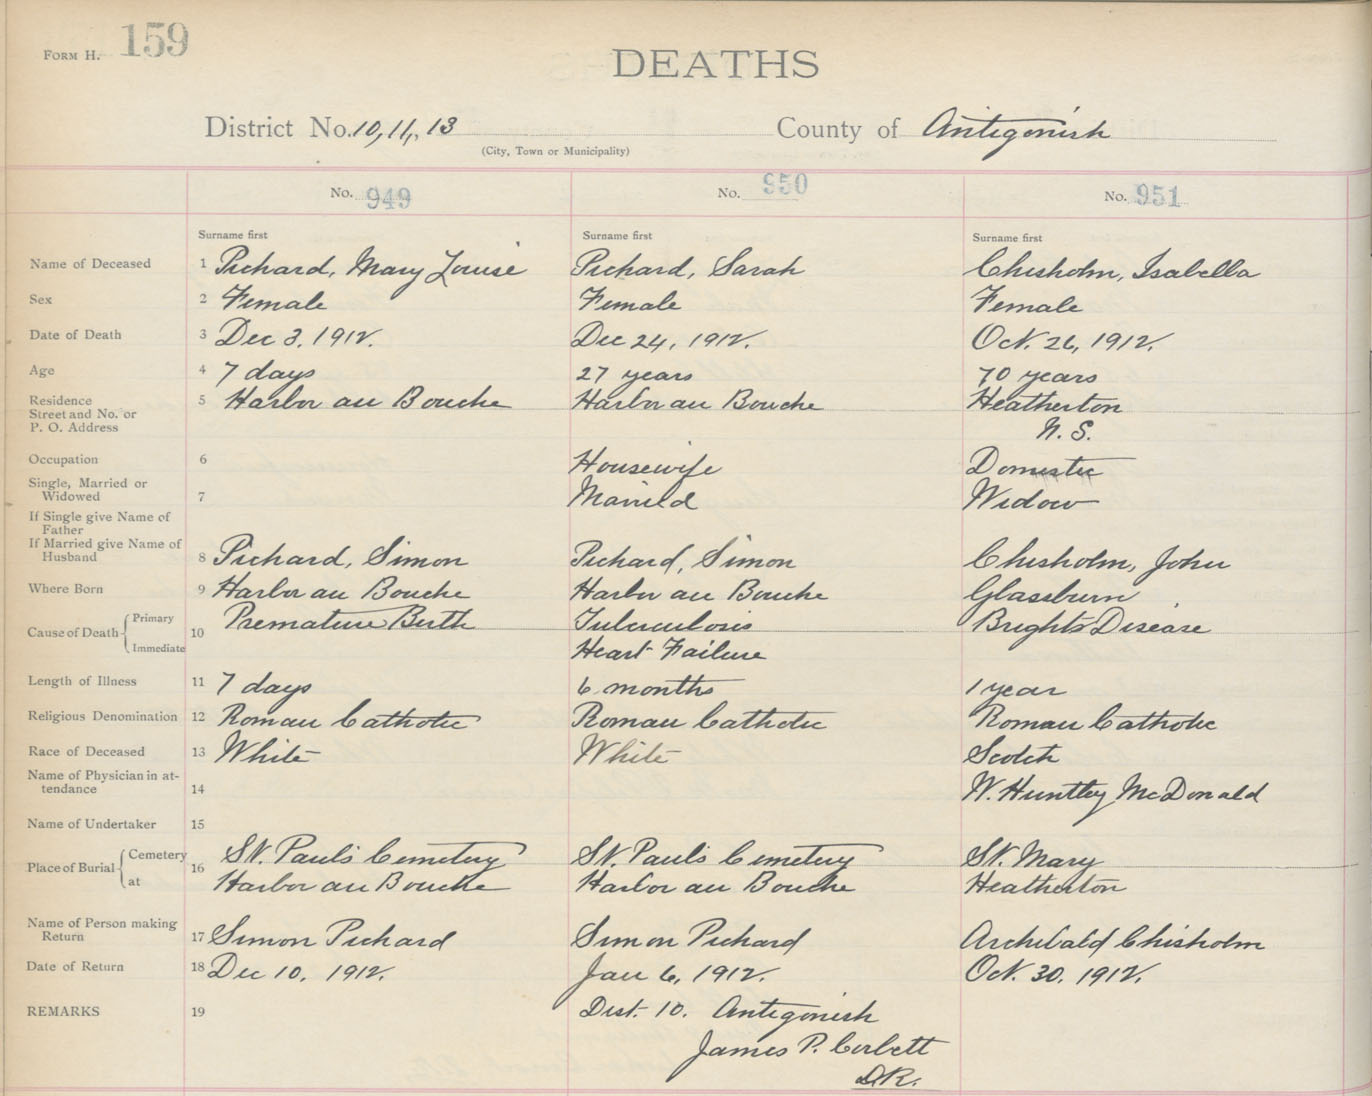 FORM H. 159
DEATHS
District No. 10, 11, 13 County of Antigonish
(City, Town or Municipality)
No. 949 No. 950 No. 951
Surname first Surname first Surname first
Name of Deceased 1 Pichard, Mary Louise Pichard, Sarah Chisholm, Isabella
Sex 2 Female Female Female
Date of Death 3 Dec 3, 1912. Dec 24, 1912. Oct. 26, 1912.
Age 4 7 days 27 years 70 years
Residence 5 Harbor au Bouche Harbor au Bouche Heatherton
Street and No. or
P. O. Address N. S.
Occupation 6 Housewife Domestic
Single, Married or
Widowed 7 Married Widow
If Single give Name of
Father
If Married give Name of
Husband 8 Pichard, Simon Pichard, Simon Chisholm, John
Where Born 9 Harbor au Bouche Harbor au Bouche Glassburn
Cause of Death Primary 10 Premature Birth Tuberculosis Brights Disease
Immediate Heart Failure
Length of Illness 11 7 days 6 months 1 year
Religious Denomination 12 Roman Catholic Roman Catholic Roman Catholic
Race of Deceased 13 White White Scotch
Name of Physician in at-
tendance 14 W. Huntley McDonald
Name of Undertaker 15
Place of Burial Cemetery 16 St. Paul's Cemetery St. Paul's Cemetery St. Mary
at Harbor au Bouche Harbor au Bouche Heatherton
Name of Person making
Return 17 Simon Pichard Simon Pichard Archibald Chisholm
Date of Return 18 Dec 10, 1912. Jan 6, 1912. Oct. 30, 1912.
REMARKS 19 Dist. 10. Antigonish
James P. Corbett
D.R.